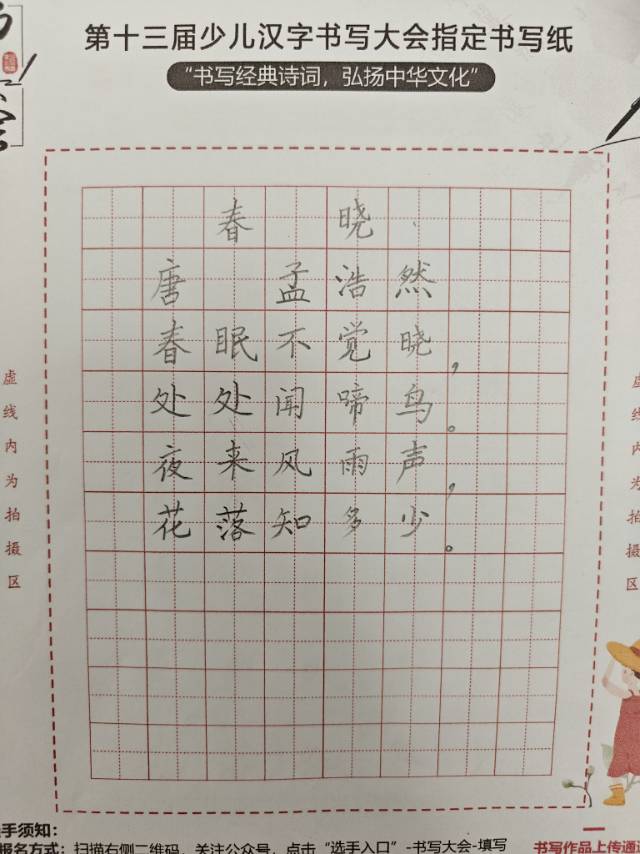 第十三届少儿汉字书写大会指定书写纸
“书写经典诗词，弘扬中华文化”
春晓
唐 孟浩然
春眠不觉晓，
处处闻啼鸟。
夜来风雨声，
花落知多少。
虚线内为拍摄区
虚线内为拍摄区
选手须知：
报名方式：扫描右侧二维码，关注公众号，点击“选手入口”-书写大会-填写
书写作品上传通道